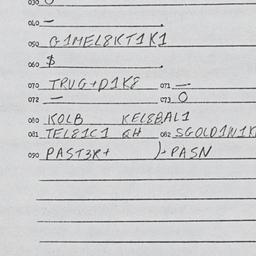 030
040 —
050 G1MEL8KT1K1
060 $
070 TRUG+D1K8 071 —
072 — 073 O
080 KOLB KEL8BAL1
081 TEL81C1 GH 082 SGOLD1N1K
090 PAST3R+ )+PASN